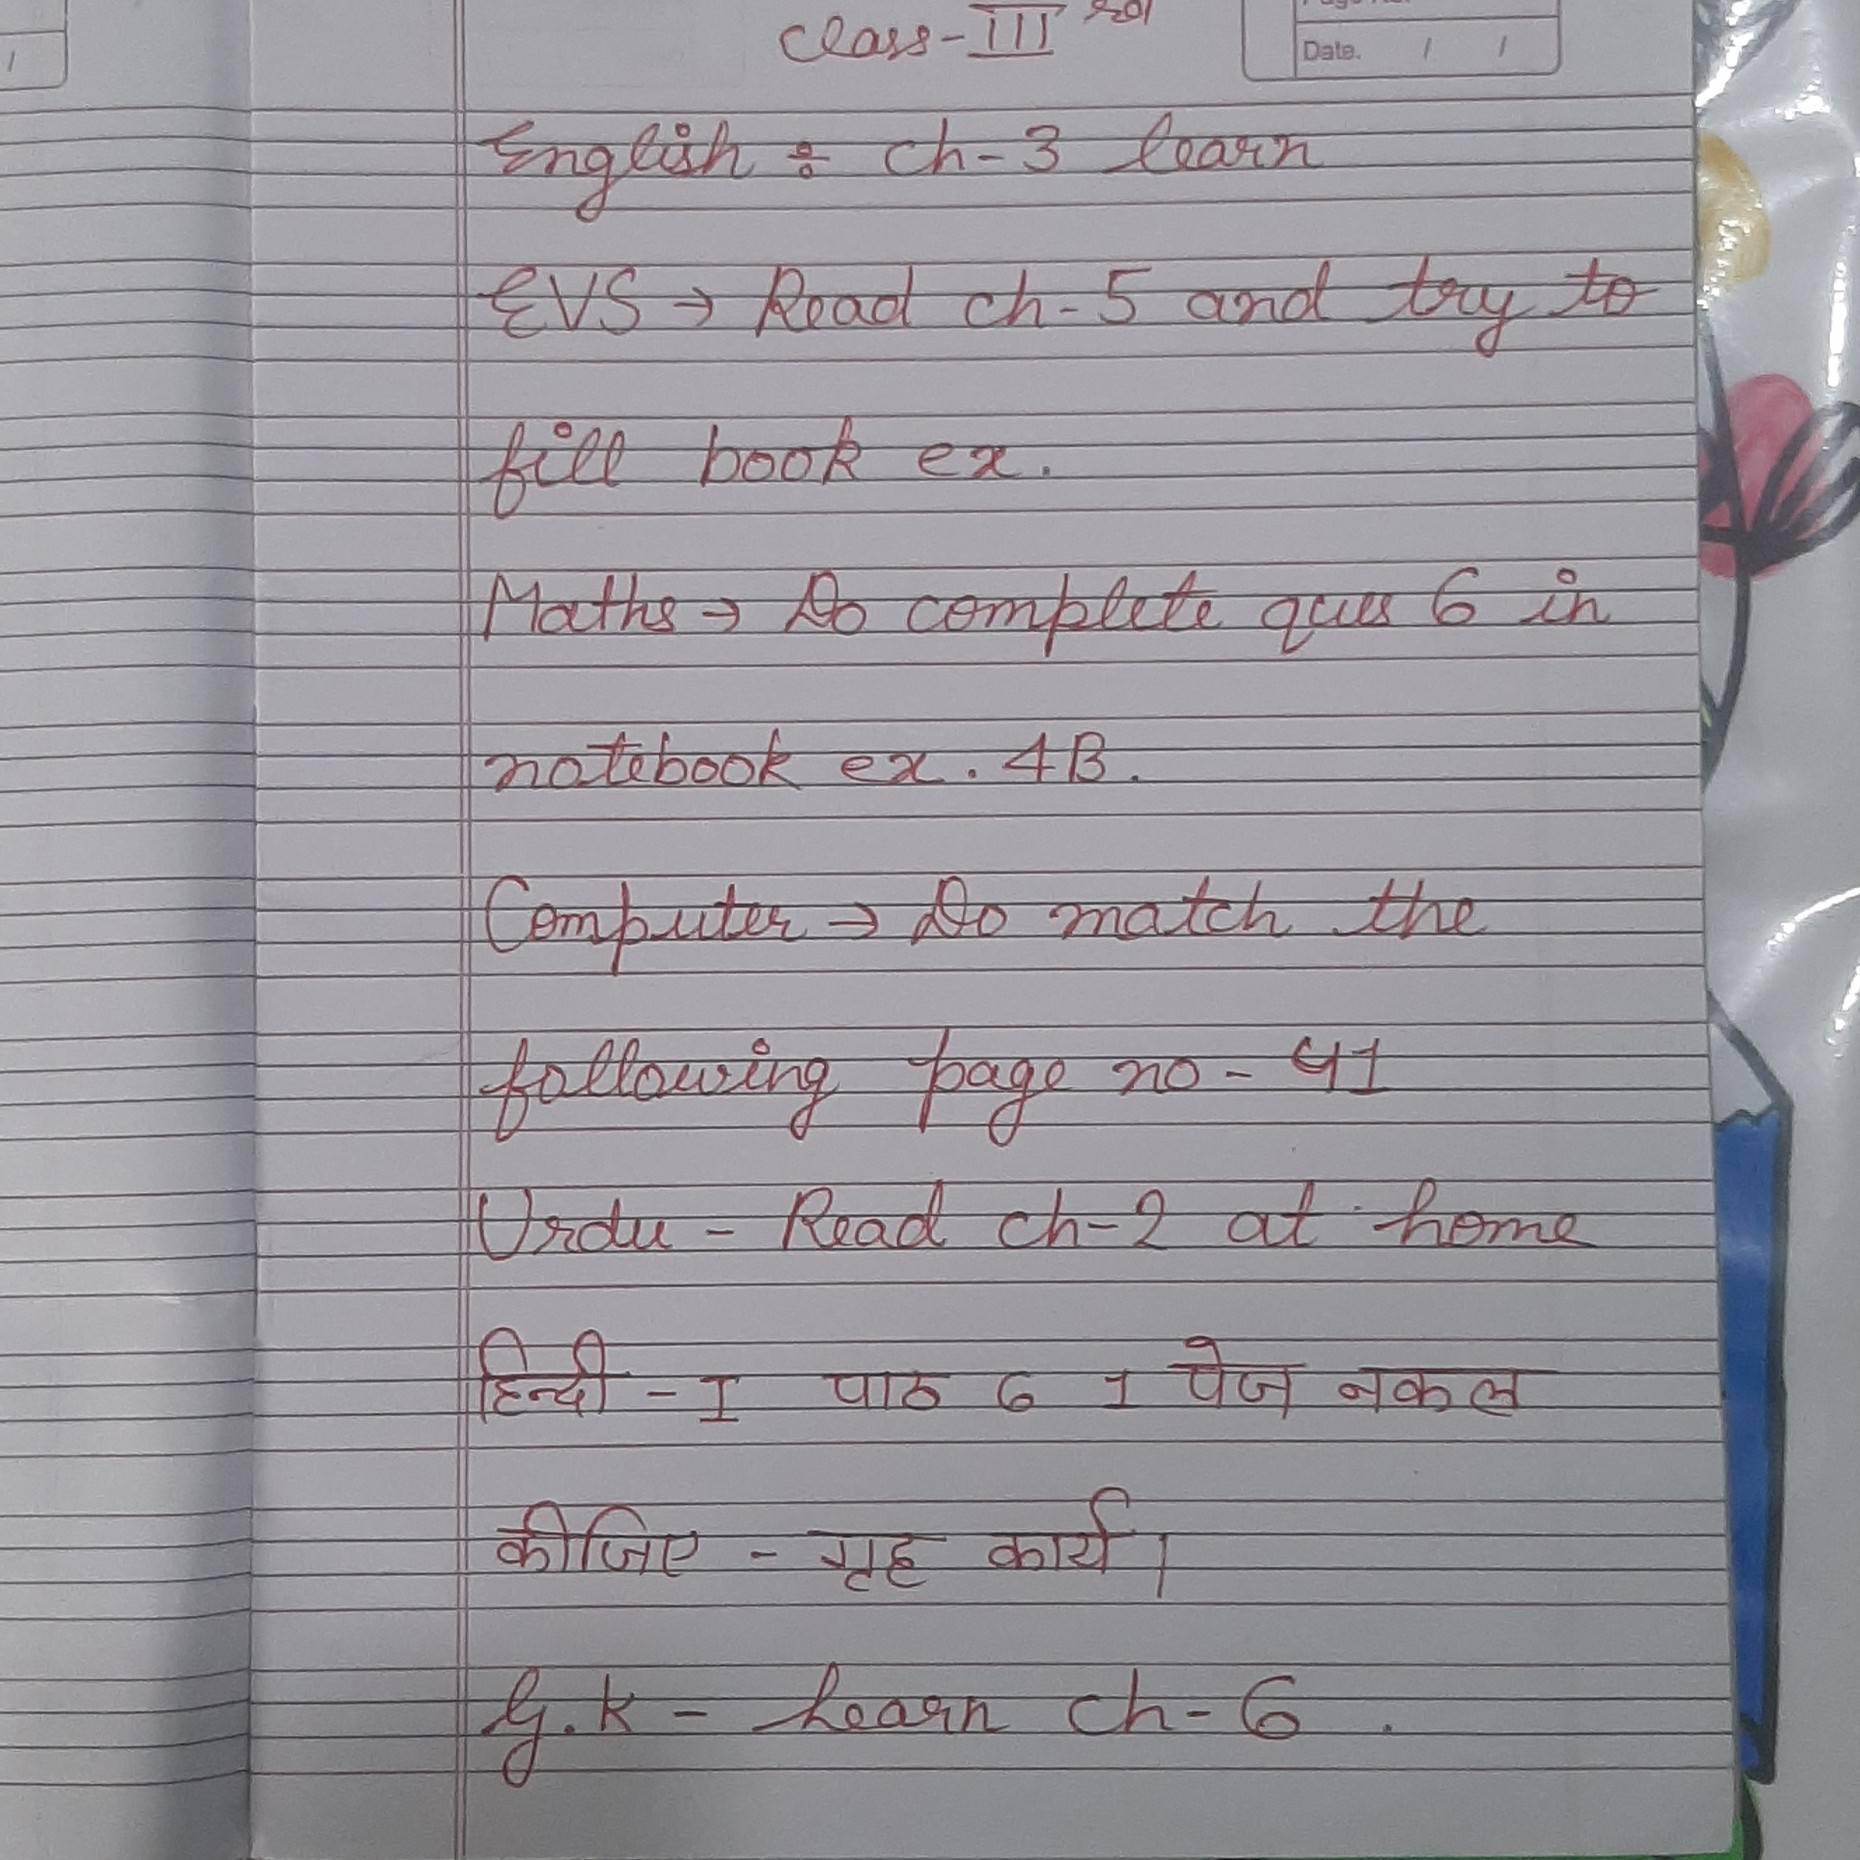 Class-III
Date. / /
English ÷ ch-3 learn
EVS → Read ch-5 and try to
fill book ex.
Maths → Do complete ques 6 in
notebook ex. 4B.
Computer → Do match the
following page no - 41
Urdu - Read ch-2 at home
हिन्दी - I पाठ 6 1 पेज नकल
कीजिए - गृह कार्य।
G.K - Learn ch-6 .